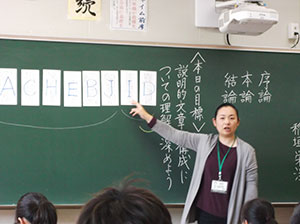 続
ACHEBJID
〈本日の目標〉
説明的文章の構成に
ついての理解を深めよう
序論
本論
結論